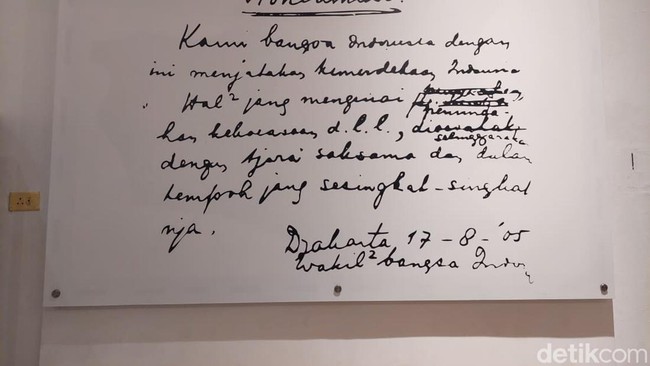 Proklamasi.
Kami bangsa Indonesia dengan
ini menjatakan kemerdekaan Indonesia
Hal² jang mengenai
peminda-
han kekoeasaan d.l.l., diselenggaraka
dengan tjara saksama dan dalam
tempoh jang sesingkat-singkat
nja.
Djakarta 17-8-'05
Wakil² bangsa Indon
detikcom